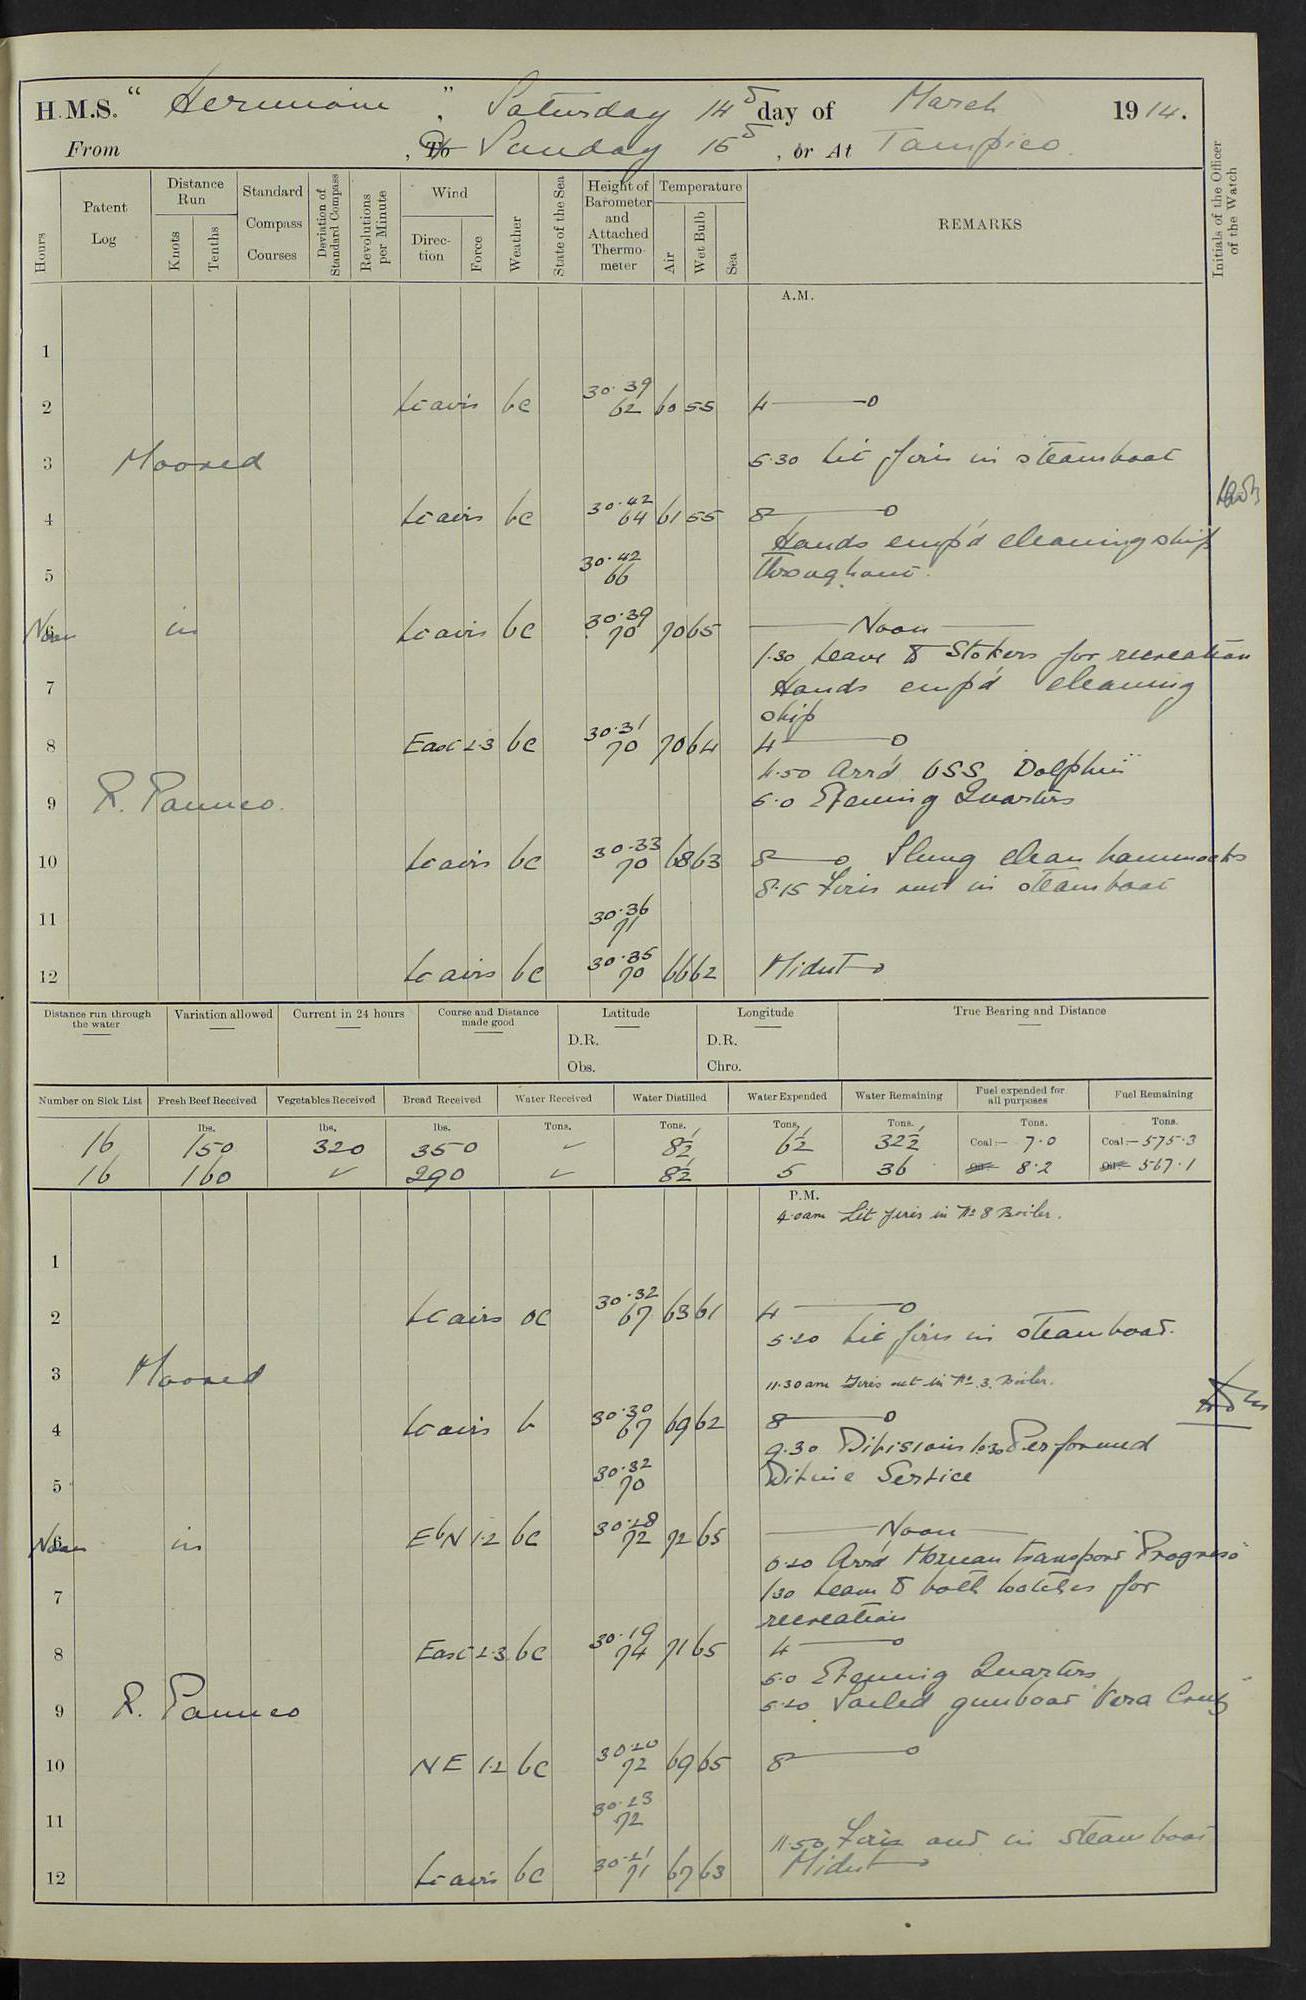 H.M.S. " Hermione ", Saturday 14th day of March 1914.
From , To Sunday 15th , or At Tampico.
Hours
Patent Log
Distance Run
Knots
Tenths
Standard Compass Courses
Deviation of Standard Compass
Revolutions per Minute
Wind
Direction
Force
Weather
State of the Sea
Height of Barometer and Attached Thermometer
Temperature
Air
Wet Bulb
Sea
REMARKS
Initials of the Officer of the Watch
A.M.
1
2 Lt airs bc 30.39 62 60 55 4
3 Moored 5.30 Lit fires in steamboat
4 Lt airs bc 30.42 64 61 55 8
Hands emp'd cleaning ship
5 30.42 66 throughout.
6 Noon in Lt airs bc 30.39 70 70 65 Noon
1.30 Leave to Stokers for recreation
7 Hands emp'd cleaning
ship
8 East 2.3 bc 30.31 70 70 64 4
4.50 Arr'd USS "Dolphin"
9 R. Panuco. 5.0 Evening Quarters
10 Lt airs bc 30.33 70 68 63 8 Slung clean hammocks
8.15 Fires out in steamboat
11 30.36 71
12 Lt airs bc 30.35 70 66 62 Midnt
Distance run through the water
Variation allowed
Current in 24 hours
Course and Distance made good
Latitude
D.R.
Obs.
Longitude
D.R.
Chro.
True Bearing and Distance
Number on Sick List Fresh Beef Received Vegetables Received Bread Received Water Received Water Distilled Water Expended Water Remaining Fuel expended for all purposes Fuel Remaining
lbs. lbs. lbs. Tons. Tons. Tons. Tons. Tons. Tons.
16 150 320 350 ✓ 8½ 6½ 32½ Coal:— 7.0 Coal:— 575.3
16 160 ✓ 290 ✓ 8½ 5 36 Oil:— 8.2 Oil:— 567.1
P.M.
4.0am Lit fires in No 8 Boiler.
1
2 Lt airs oc 30.32 67 63 61 4
5.20 Lit fires in steamboat.
3 Moored 11.30am Fires out in No 3. Boiler.
4 Lt airs b 30.30 67 69 62 8
9.30 Divisions 10.30 Performed
5 30.32 70 Divine Service
6 Noon in EbN 1.2 bc 30.28 72 72 65 Noon
0.20 Arr'd Mexican transport "Progreso"
7 1.30 Leave to both watches for
recreation
8 East 2.3 bc 30.19 74 71 65 4
5.0 Evening Quarters
9 R. Panuco 5.20 Sailed gunboat "Vera Cruz"
10 NE 1.2 bc 30.20 72 69 65 8
11 30.23 72
11.50 Fires out in steamboat
12 Lt airs bc 30.21 71 67 63 Midnt